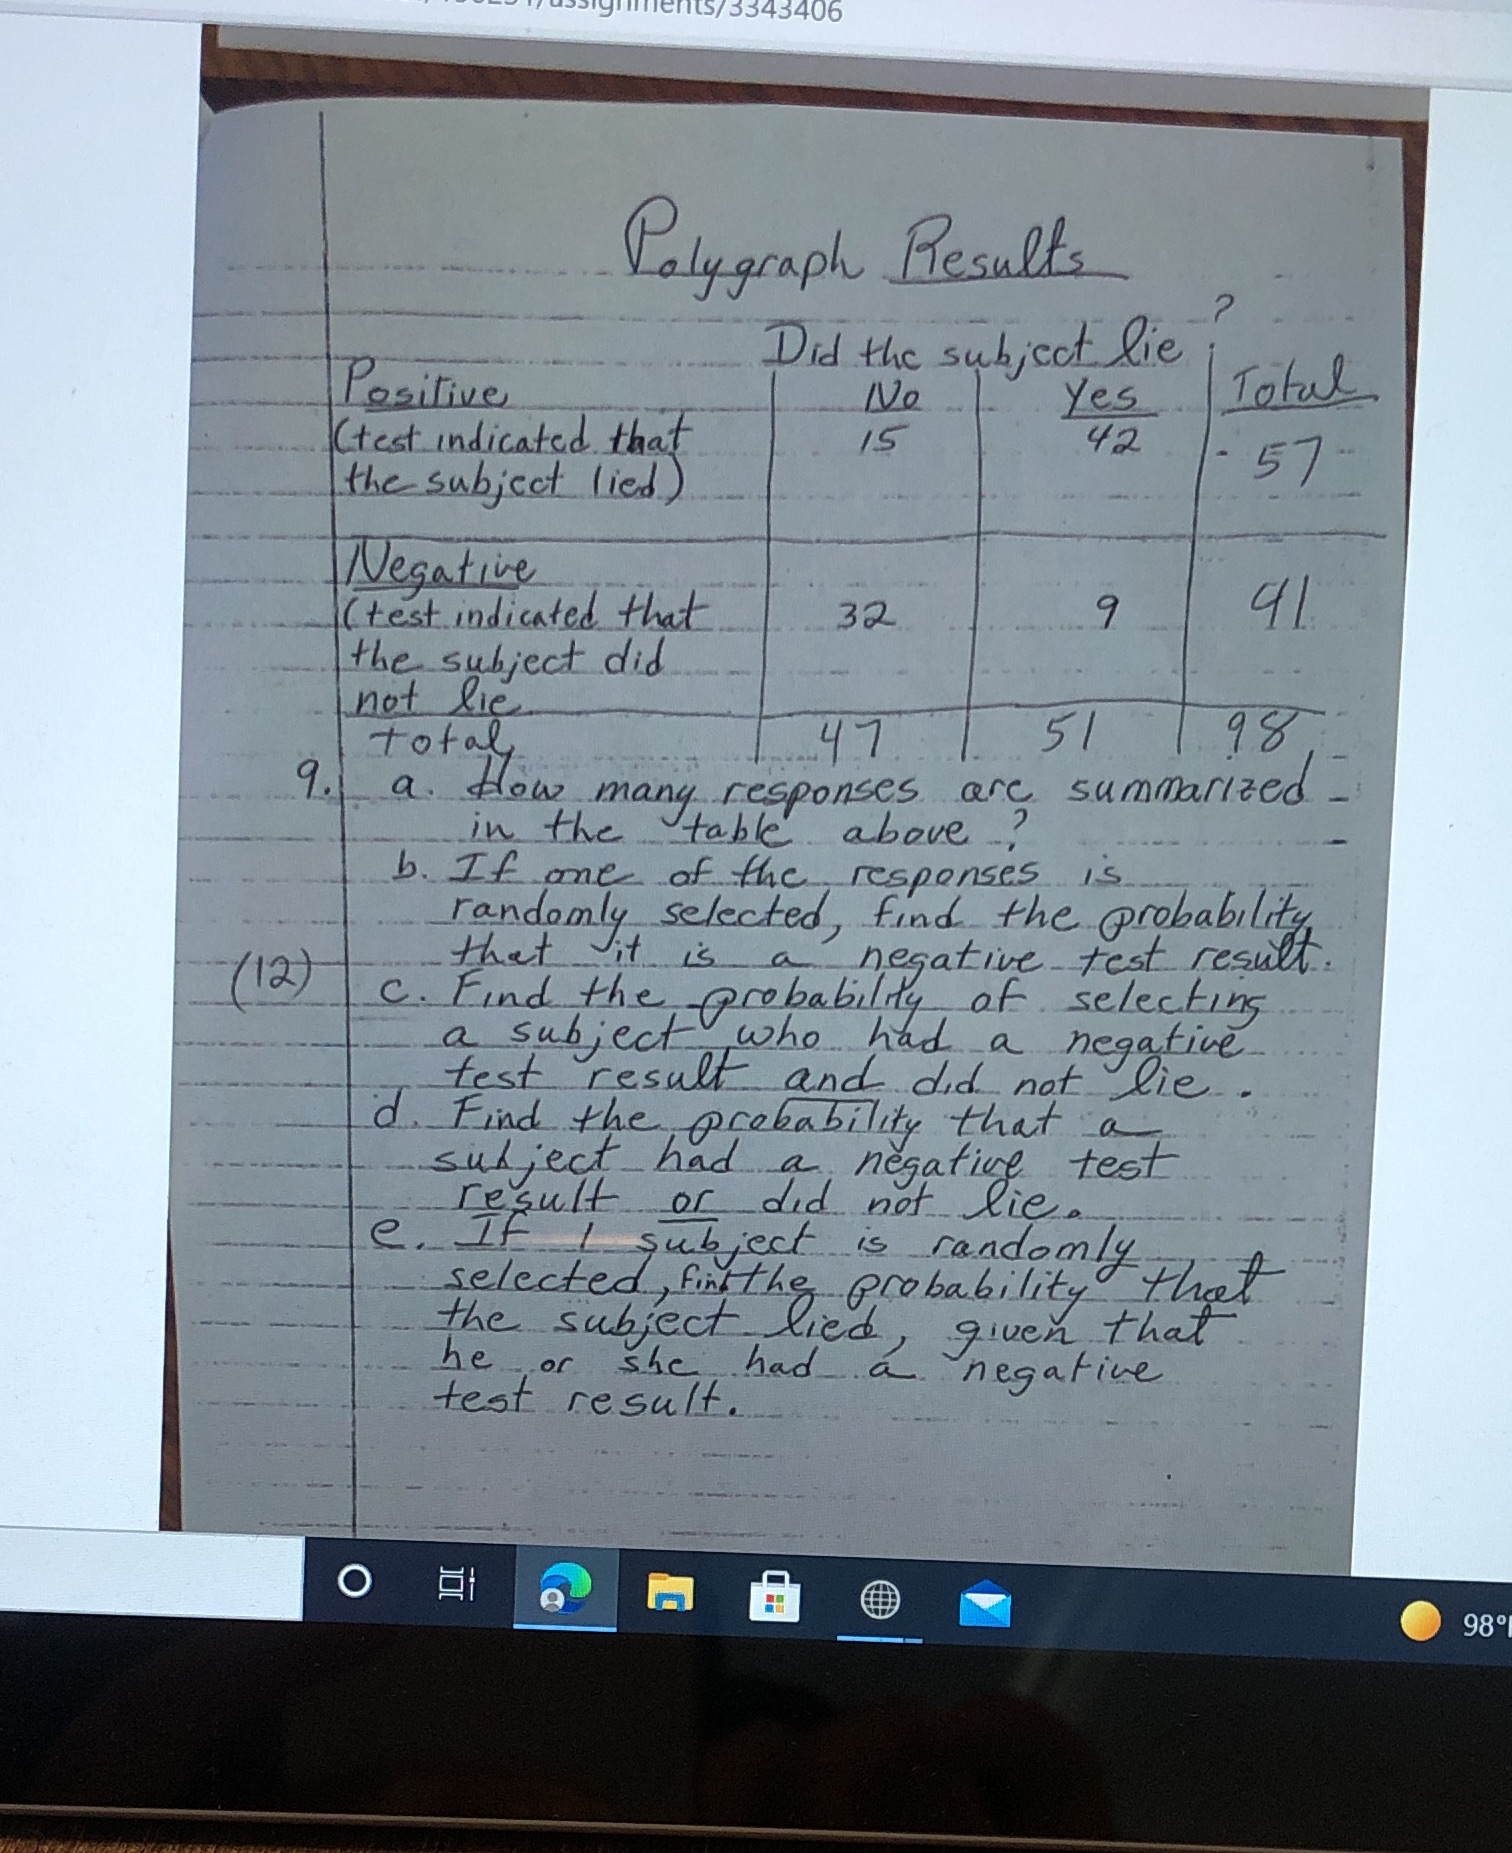 assignments/3343406
Polygraph Results
Did the subject lie ?
Positive No Yes Total
(test indicated that 15 42 57
the subject lied)
Negative
(test indicated that 32 9 41
the subject did
not lie
total 47 51 98
9. a. How many responses are summarized
in the table above ?
b. If one of the responses is
randomly selected, find the probability
that it is a negative test result.
(12)
c. Find the probability of selecting
a subject who had a negative
test result and did not lie.
d. Find the probability that a
subject had a negative test
result or did not lie.
e. If 1 subject is randomly
selected, find the probability that
the subject lied, given that
he or she had a negative
test result.
98°